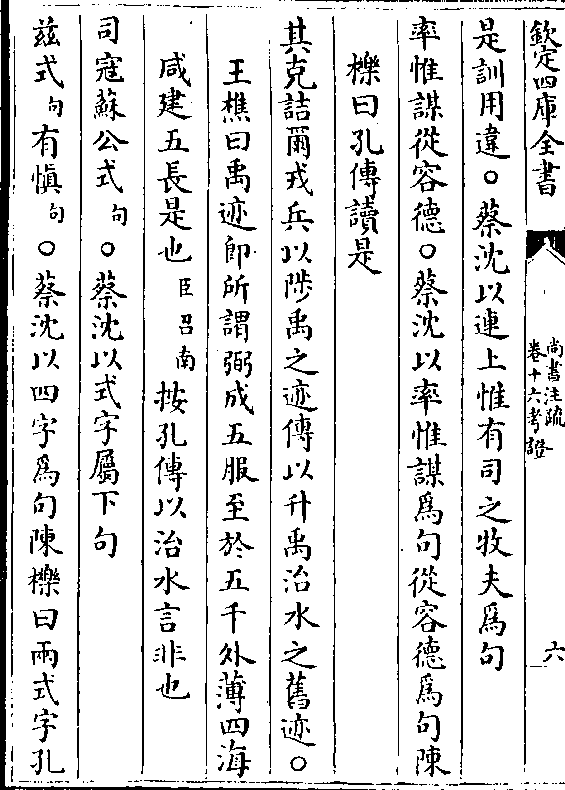 欽定四庫全書
尚書注疏
卷十六考證
六
是訓用違○蔡沈以連上惟有司之牧夫為句
率惟謀從容德○蔡沈以率惟謀爲句從容德爲句陳
櫟曰孔傳讀是
其克詰爾戎兵以陟禹之迹傳以升禹治水之舊迹○
王樵曰禹迹卽所謂弼成五服至於五千外薄四海
咸建五長是也臣召南按孔傳以治水言非也
司寇蘇公式句○蔡沈以式字屬下句
兹式句有慎句○蔡沈以四字爲句陳櫟曰兩式字孔